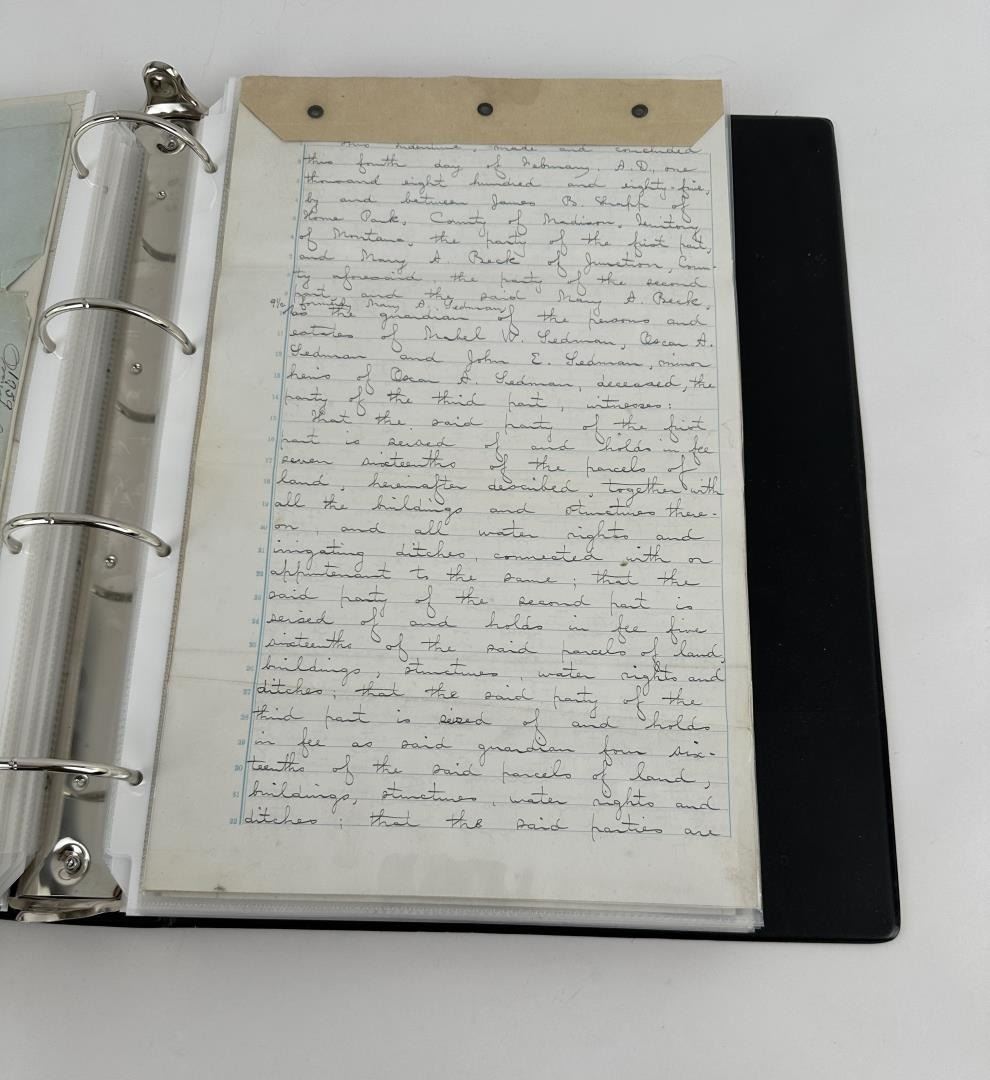 This indenture, made and concluded
this fourth day of February, A.D., one
thousand eight hundred and eighty-five,
by and between James B. Knapp of
Home Park, County of Madison, Territory
of Montana, the party of the first part,
and Mary A. Beck of Junction, Coun-
ty aforesaid, the party of the second
part and the said Mary A. Beck,
9½ formerly Mary A. Sedman,
as the guardian of the persons and
estates of Mabel W. Sedman, Oscar A.
Sedman and John E. Sedman, minor
heirs of Oscar A. Sedman, deceased, the
party of the third part, witnesses:
That the said party of the first
part is seised of and holds in fee
seven sixteenths of the parcels of
land, hereinafter described, together with
all the buildings and structures there-
on, and all water rights and
irrigating ditches, connected with or
appurtenant to the same; that the
said party of the second part is
seised of and holds in fee five
sixteenths of the said parcels of land,
buildings, structures, water rights and
ditches; that the said party of the
third part is seized of and holds
in fee as said guardian four six-
teenths of the said parcels of land,
buildings, structures, water rights and
ditches; that the said parties are